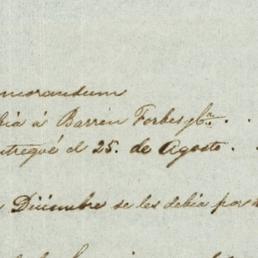 emorandum
bia á Barrón Forbes y Cª. . .
ntregué el 25. de Agosto. .
Diciembre se les debia por